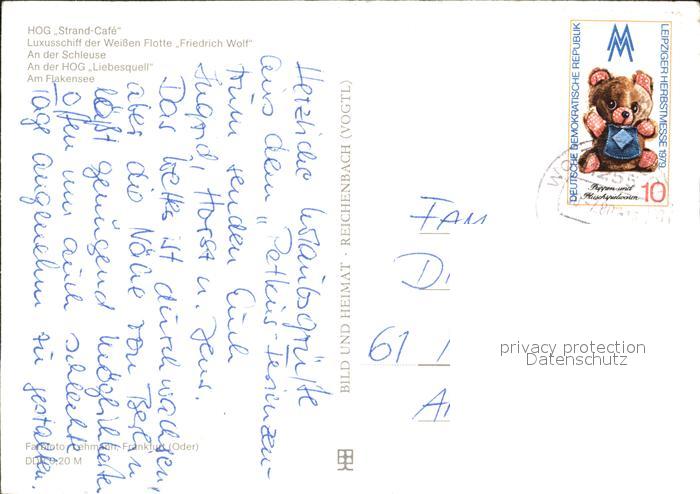 HOG „Strand-Café"
Luxusschiff der Weißen Flotte „Friedrich Wolf"
An der Schleuse
An der HOG „Liebesquell"
Am Flakensee
Herzliche Urlaubsgrüße
aus dem „Petkus-Ferienzen-
trum senden Euch
Ingrid, Horst u. Jens.
Das Wetter ist durchwachsen,
aber die Nähe von Berlin
läßt genügend Möglichkeiten
offen um auch schlechte
Tage angenehm zu gestalten.
Farbfoto: Lehmann, Frankfurt (Oder)
DDR 0,20 M
BILD UND HEIMAT · REICHENBACH (VOGTL)
DEUTSCHE DEMOKRATISCHE REPUBLIK
LEIPZIGER HERBSTMESSE 1979
Puppen und
Plüschspielwaren
10
FAM
D
61
A
privacy protection
Datenschutz